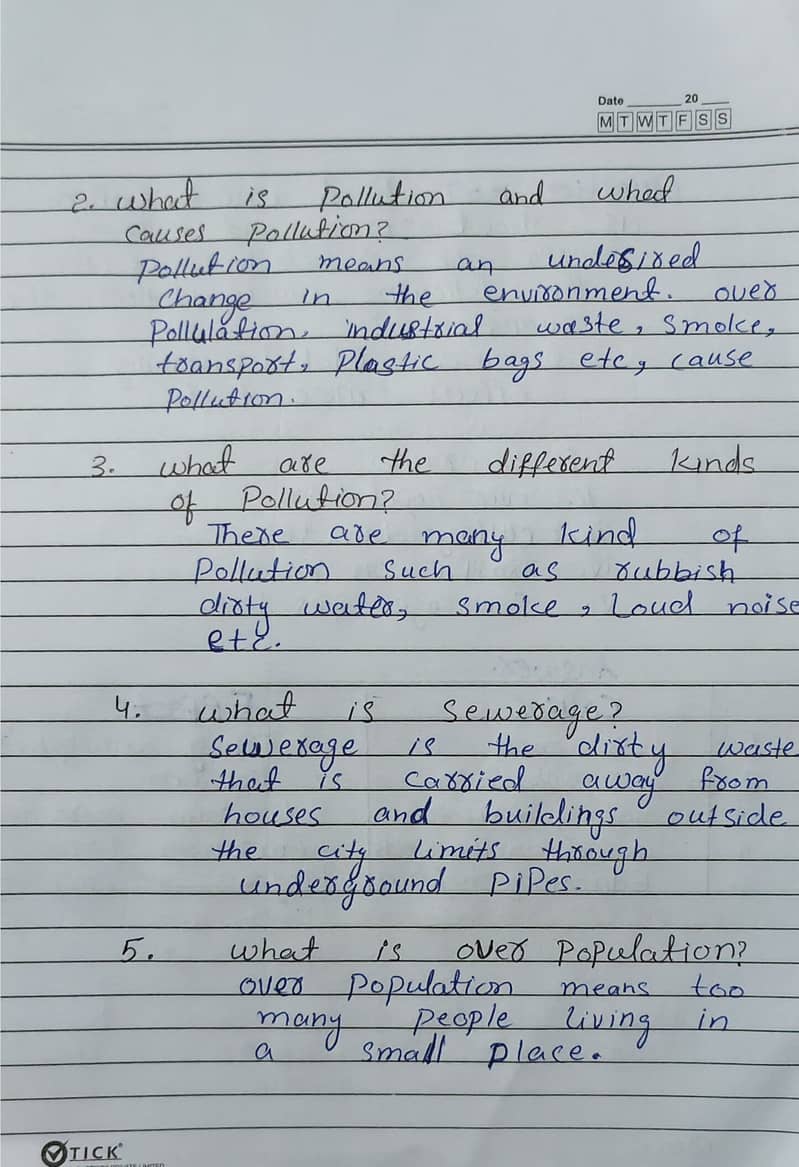 Date ______ 20 ___
M T W T F S S
2. What is Pollution and what
causes Pollution?
Pollution means an undesired
Change in the environment. over
Pollulation, industrial waste, smoke,
transport, Plastic bags etc, cause
Pollution.
3. what are the different kinds
of Pollution?
There are many kind of
Pollution Such as rubbish
dirty water, smoke, Loud noise
etc.
4. what is Sewerage?
Sewerage is the dirty waste
that is carried away from
houses and buildings outside
the city limits through
underground PiPes.
5. what is over Population?
over Population means too
many people living in
a small place.
TICK